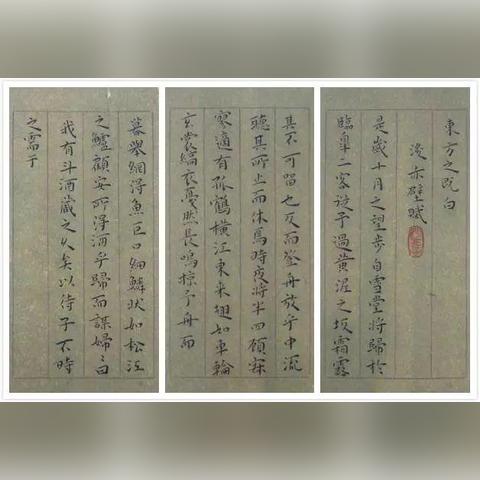 東方之既白
後赤壁賦
是歲十月之望步自雪堂將歸於
臨皋二客從予過黃泥之坂霜露
其不可留也反而登舟放乎中流
聽其所止而休焉時夜將半四顧寂
寥適有孤鶴橫江東來翅如車輪
玄裳縞衣戛然長鳴掠予舟而
暮舉網得魚巨口細鱗狀如松江
之鱸顧安所得酒乎歸而謀婦〻曰
我有斗酒藏之久矣以待子不時
之需于